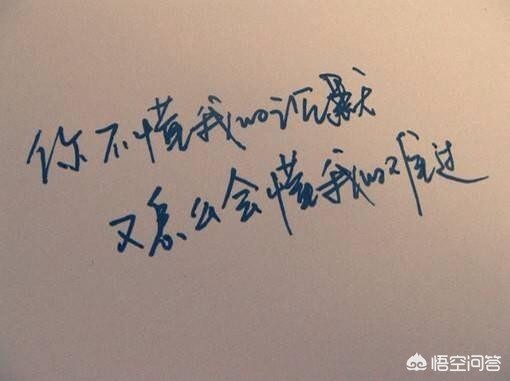 你不懂我的沉默
又怎么会懂我的难过
悟空问答